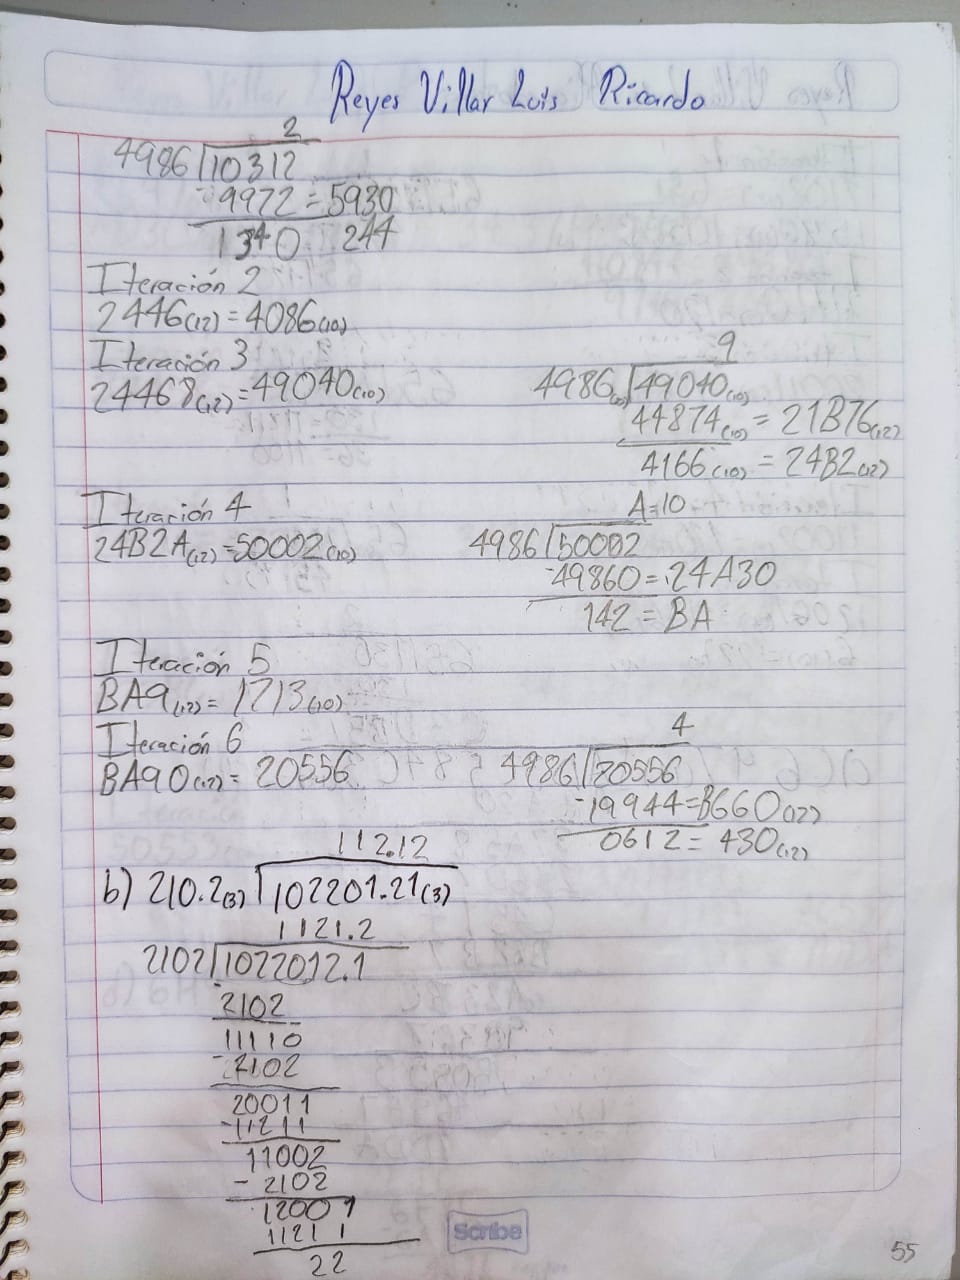 Reyes Villar Luis Ricardo
2
4986 10312
-9972 = 5930
1340 244
Iteración 2
2446(12) = 4086(10)
Iteración 3
24468(12) = 49040(10)
9
4986(10) 49040(10)
44874(10) = 21B76(12)
4166(10) = 24B2(12)
Iteración 4
24B2A(12) = 50002(10)
A=10
4986 50002
-49860 = 24A30
142 = BA
Iteración 5
BA9(12) = 1713(10)
Iteración 6
BA90(12) = 20556
4
4986 20556
-19944 = B660(12)
0612 = 430(12)
112.12
b) 210.2(3) 102201.21(3)
1121.2
2102 1022012.1
2102
11110
-2102
20011
-11211
11002
- 2102
12001
11211
22
Scribe
55